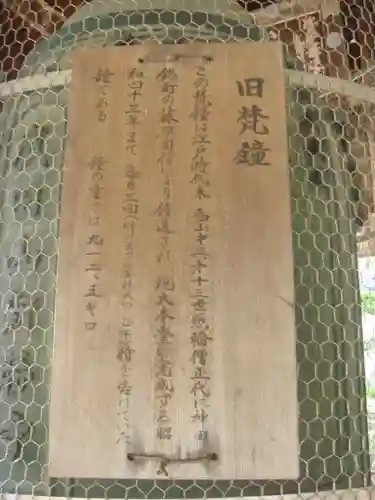 旧梵鐘
この梵鐘は江戸時代末 当山第三百十三世照輪僧正代に神田
鍋町の　　寄付により鋳造され 現大本堂が完成する昭
和四十三年まで 毎日三回　　　　　　　　時を告げていた
鐘である 鐘の重さは 九一二、五キロ